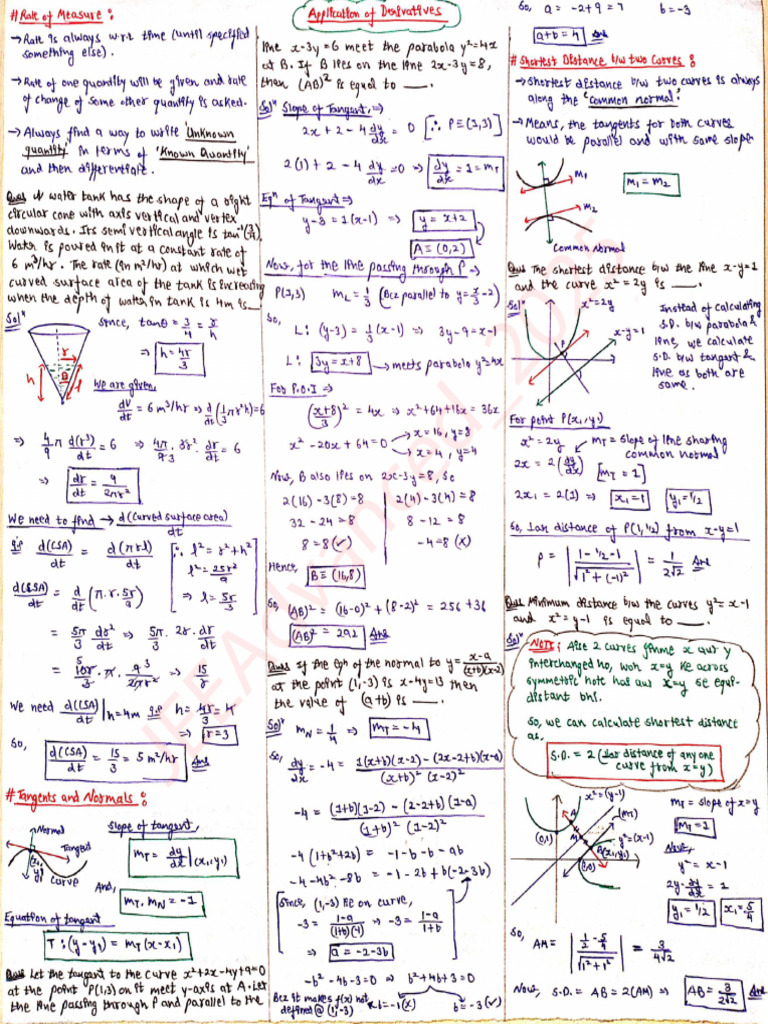 Application of Derivatives
# Rate of Measure :
→ Rate is always w.r.t time (until specified
something else).
→ Rate of one quantity will be given and rate
of change of some other quantity is asked.
→ Always find a way to write 'Unknown
quantity' in terms of 'Known Quantity'
and then differentiate.
Ques A water tank has the shape of a right
circular cone with axis vertical and vertex
downwards. Its semi vertical angle is tan⁻¹(3/4).
Water is poured in it at a constant rate of
6 m³/hr. The rate (in m²/hr) at which wet
curved surface area of the tank is increasing
when the depth of water in tank is 4m is
Solⁿ
since, tanθ = 3/4 = r/h
⇒ h = 4r/3
h
r
θ
l
We are given,
dV/dt = 6 m³/hr ⇒ d/dt(1/3 πr²h) = 6
⇒ 4/9 π d(r³)/dt = 6 ⇒ 4π/9·3 3r² · dr/dt = 6
⇒ dr/dt = 9/2πr²
We need to find → d(curved surface area)/dt
i.e. d(CSA)/dt = d(πrl)/dt
[∵ l² = r² + h²
l² = 25r²/9
⇒ l = 5r/3]
d(CSA)/dt = d/dt (π.r.5r/3)
= 5π/3 dr²/dt ⇒ 5π/3 · 2r · dr/dt
= 10r/3 · π · 9³/2πr² ⇒ 15/r
We need d(CSA)/dt | h=4m i.e. h = 4r/3 = 4
⇒ r=3
So, d(CSA)/dt = 15/3 = 5 m²/hr Ans
# Tangents and Normals :
Normal
Tangent
(x₁, y₁)
curve
Slope of tangent,
m_T = dy/dx |(x₁,y₁)
And,
m_T . m_N = -1
Equation of tangent
T : (y-y₁) = m_T (x-x₁)
Ques Let the tangent to the curve x²+2x-4y+9=0
at the point P(1,3) on it meet y-axis at A. Let
the line passing through P and parallel to the
line x-3y=6 meet the parabola y²=4x
at B. If B lies on the line 2x-3y=8,
then (AB)² is equal to ___.
Solⁿ Slope of Tangent ⇒
2x + 2 - 4 dy/dx = 0 [∵ P ≡ (1,3)]
2(1) + 2 - 4 dy/dx = 0 ⇒ dy/dx = 1 = m_T
Eqⁿ of Tangent ⇒
y-3 = 1(x-1) ⇒ y = x+2
A ≡ (0,2)
Now, for the line passing through P ⇒
P(1,3) m_L = 1/3 (Bcz parallel to y = x/3 - 2)
So,
L : (y-3) = 1/3 (x-1) ⇒ 3y-9 = x-1
L : 3y = x+8 → meets parabola y²=4x
For P.O.I ⇒
((x+8)/3)² = 4x ⇒ x²+64+16x = 36x
x² - 20x + 64 = 0
x = 16, y = 8
x = 4, y = 4
Now, B also lies on 2x-3y=8, so
2(16) - 3(8) = 8 2(4) - 3(4) = 8
32 - 24 = 8 8 - 12 = 8
8 = 8 (✓) -4 = 8 (X)
Hence,
B ≡ (16,8)
So, (AB)² = (16-0)² + (8-2)² = 256 + 36
(AB)² = 292 Ans
Ques If the eqn of the normal to y = x-a/(x+b)(x-2)
at the point (1,-3) is x-4y=13 then
the value of (a+b) is ___.
Solⁿ m_N = 1/4 ⇒ m_T = -4
So,
dy/dx = -4 = 1(x+b)(x-2) - (2x-2+b)(x-a)/(x+b)² (x-2)²
-4 = (1+b)(1-2) - (2-2+b)(1-a)/(1+b)² (1-2)²
-4(1+b²+2b) = -1-b-b-ab
-4-4b²-8b = -1-2b+b(-2-3b)
[Since, (1,-3) lie on curve,
-3 = 1-a/(1+b)(-1) ⇒ -3 = 1-a/1+b
⇒ a = -2-3b]
-b²-4b-3=0 ⇒ b²+4b+3=0
b=-1(X) b=-3(✓)
Bcz it makes f(x) not
defined @ (1,-3)
So, a = -2+9 = 7 b = -3
a+b = 4 Ans
# Shortest Distance b/w two Curves :
→ Shortest distance b/w two curves is always
along the 'common normal'.
→ Means, the tangents for both curves
would be parallel and with same slope
m₁
m₂
m₁ = m₂
Common Normal
Ques The shortest distance b/w the line x-y=1
and the curve x²=2y is ___.
Solⁿ
x²=2y
x-y=1
P
Instead of calculating
S.D. b/w parabola &
line, we calculate
S.D. b/w tangent &
line as both are
same.
For point P(x₁,y₁)
x² = 2y
m_T = slope of line sharing
common normal
2x = 2(dy/dx)
[m_T = 1]
2x₁ = 2(1) ⇒ x₁=1 y₁=1/2
So, ⊥ar distance of P(1,1/2) from x-y=1
P = |1-1/2-1/√1²+(-1)²| = 1/2√2 Ans
Ques Minimum distance b/w the curves y²=x-1
and x²=y-1 is equal to ___.
Solⁿ
NOTE : Aise 2 curves jinme x aur y
interchanged ho, woh x=y ke across
symmetric hote hai aur x=y se equi-
distant bhi.
So, we can calculate shortest distance
as,
S.D. = 2 (⊥ar distance of any one
curve from x=y)
x²=(y-1)
(m_T)
y²=(x-1)
A
M
P(x₁,y₁)
(0,1)
(1,0)
m_T = slope of x=y
m_T = 1
Now,
y² = x-1
2y·dy/dx = 1
y₁=1/2 x₁=5/4
So,
AM = |1/2 - 5/4/√1²+1²| = 3/4√2
Now, S.D. = AB = 2(AM) ⇒ AB = 3/2√2 Ans
JEEAdvanced_2025